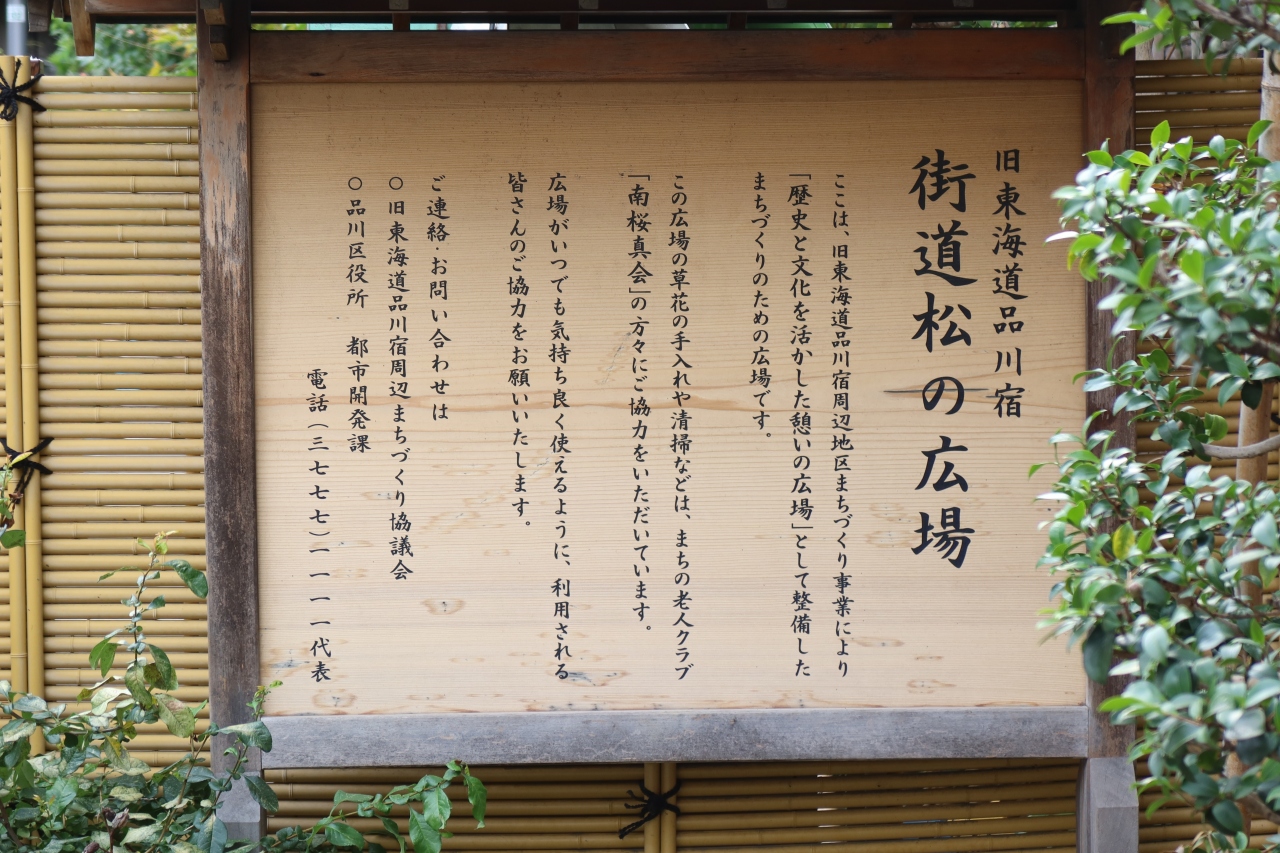 旧東海道品川宿
街道松の広場
ここは、旧東海道品川宿周辺地区まちづくり事業により
「歴史と文化を活かした憩いの広場」として整備した
まちづくりのための広場です。
この広場の草花の手入れや清掃などは、まちの老人クラブ
「南桜真会」の方々にご協力をいただいています。
広場がいつでも気持ち良く使えるように、利用される
皆さんのご協力をお願いいたします。
ご連絡・お問い合わせは
○旧東海道品川宿周辺まちづくり協議会
○品川区役所　都市開発課
電話(三七七七)一一一一代表